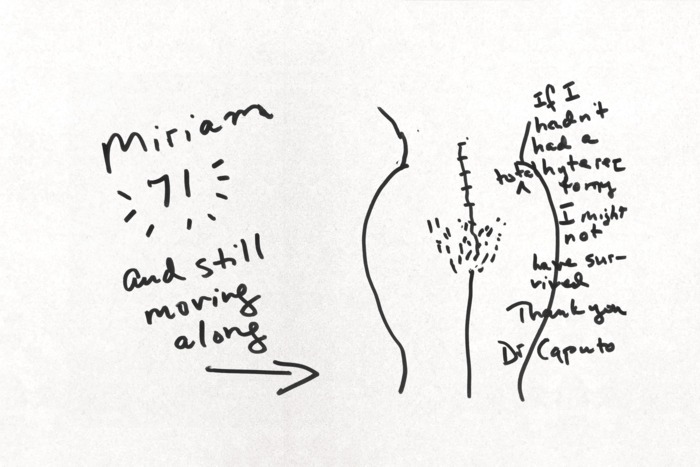 Miriam
71
and still
moving
along
If I
hadn't
had a
total hyterec
tomy
I might
not
have sur-
vived
Thank you
Dr Caputo